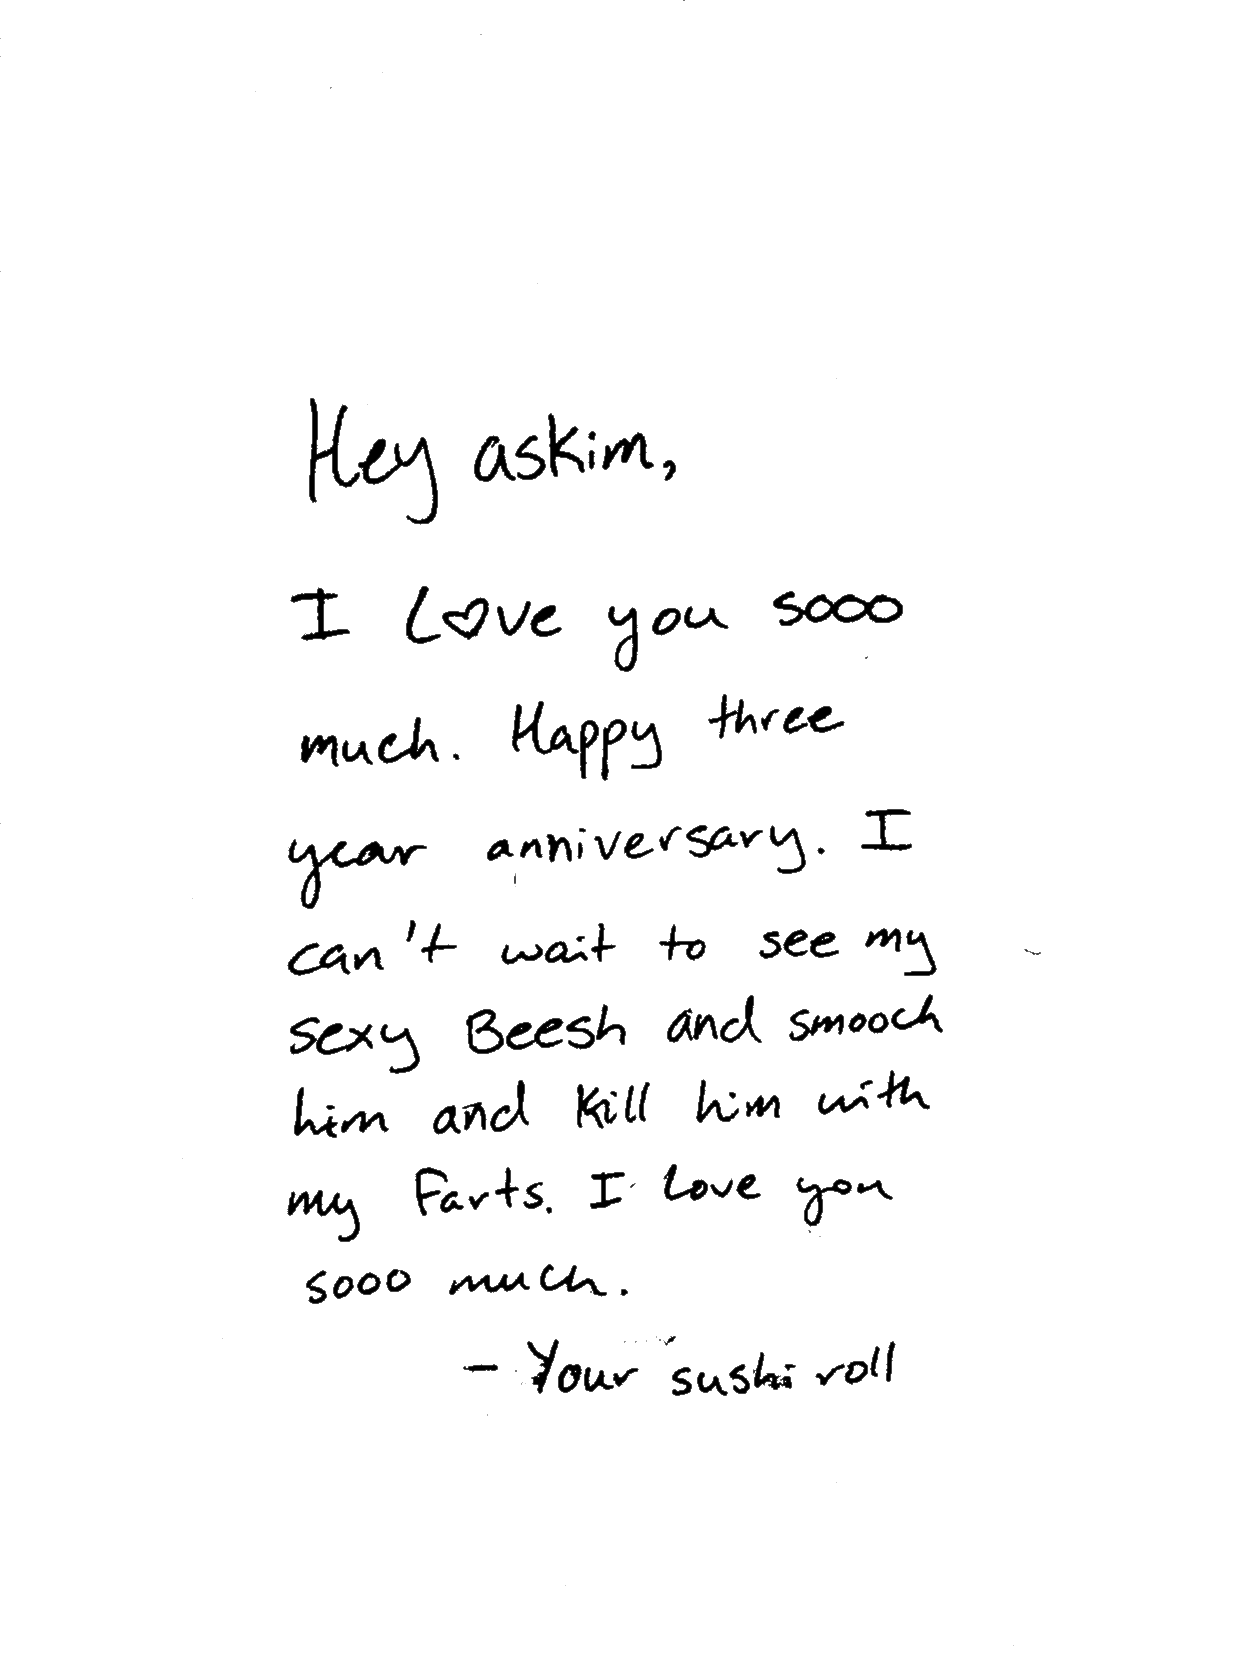 Hey askim,
I Love you sooo
much. Happy three
year anniversary. I
can't wait to see my
sexy Beesh and smooch
him and kill him with
my Farts. I love you
sooo much.
- Your sushi roll